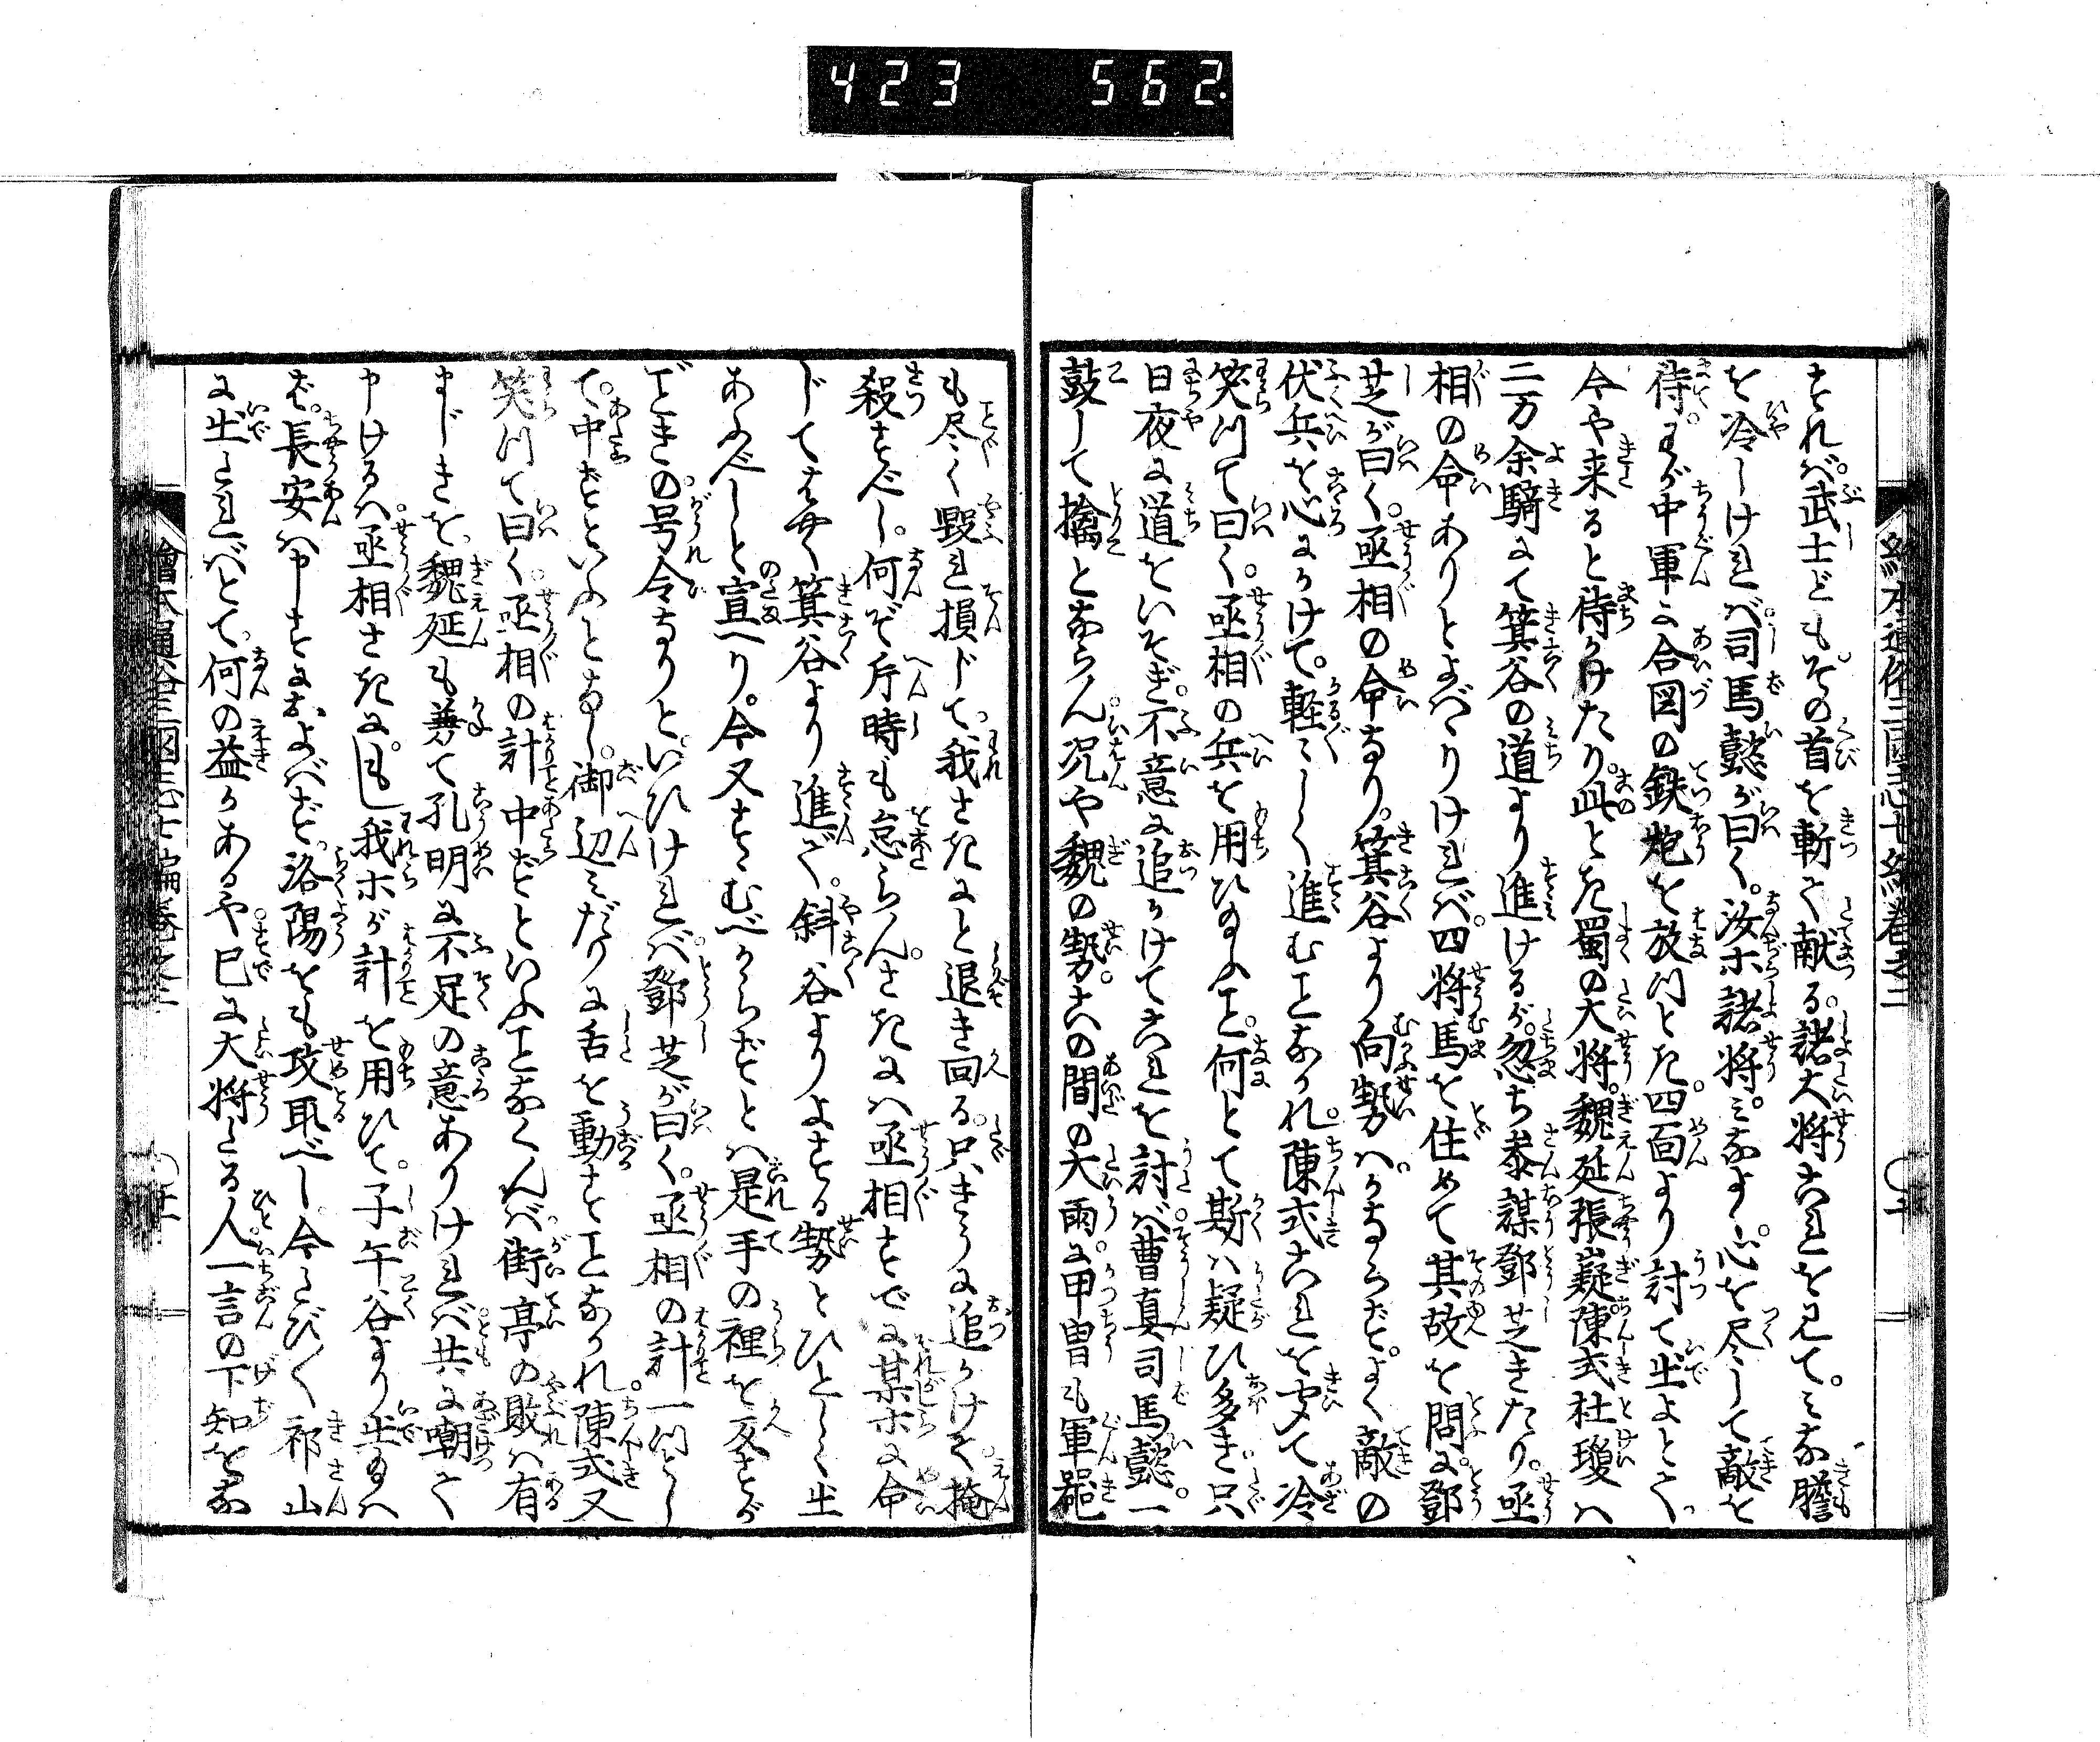 423 562
すれば。武士ども。その首を斬て献る。諸大将これを見て。みな膽
を冷しければ。司馬懿が曰く。汝ホ諸将。みなよく心を尽して敵を
待。わが中軍に合図の鉄炮を放つとき。四面より討て出よとて。
今や来ると待かけたり。此とき蜀の大将。魏延張嶷陳式杜瓊ハ
二万余騎にて箕谷の道より進けるが。忽ち参謀鄧芝きたり。丞
相の命ありとよばゝりければ。四将馬を住めて其故を問に。鄧
芝が曰く。丞相の命なり。箕谷より向勢ハ。かならず。よく敵の
伏兵を心にかけて。軽〻しく進むことなかれ。陳式これを聞て冷
笑つて曰く。丞相の兵を用ひ給ふこと。何とて斯ハ疑ひ多き。只
日夜に道をいそぎ。不意に追かけてこれを討べ。曹真司馬懿。一
鼓して擒とならん。况や魏の勢。この間の大雨に。甲冑も軍噐
も尽く毀れ損じて。我さきにと退き回る。只きうに追かけて。掩
殺すべし。何ぞ片時も怠らん。さきにハ丞相すでに某ホに命
じてはやく箕谷より進で。斜谷よりよする勢とひとしく出
あふべしと宣へり。今又すゝむべからずとハ是手の裡を反すが
ごときの号令なりと。いひければ。鄧芝が曰く。丞相の計一つとし
て。中ずといふとなし。御辺みだりに舌を動すことなかれ。陳式又
笑つて曰く。丞相の計中ずといふことなくんバ。街亭の敗ハ有
まじきを。魏延も兼て孔明に不足の意ありければ。共に嘲て
申けるハ。丞相さきに。もし我ホが計を用ひて。子午谷より出給ハ
ず。長安ハ申すにおよばず。洛陽をも攻取べし。今しひて祁山
に出たればとて。何の益かあるや。已に大将たる人。一言の下知をな